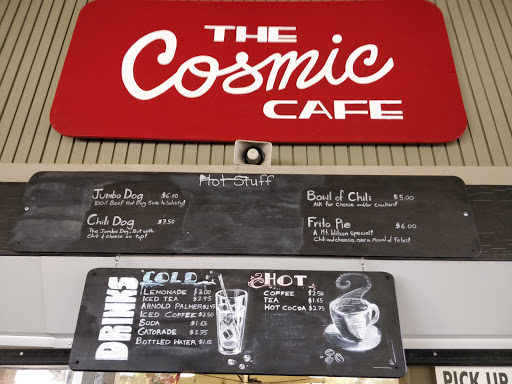 THE
Cosmic
CAFE
Hot Stuff
Jumbo Dog $6.00
100% Beef Hot Dog Sure to Satisfy!
Chili Dog $7.50
The Jumbo Dog But with
Chili & Cheese on Top!
Bowl of Chili $5.00
Ask for Cheese and/or Crackers!
Frito Pie $6.00
A Mt. Wilson Special!
Chili and cheese over a Mound of Fritos!
DRINKS
COLD
LEMONADE $3.00
ICED TEA $2.95
ARNOLD PALMER $2.95
ICED COFFEE $2.50
SODA $1.65
GATORADE $2.75
BOTTLED WATER $1.15
HOT
COFFEE $2.50
TEA $1.65
HOT COCOA $2.75
PICK UP